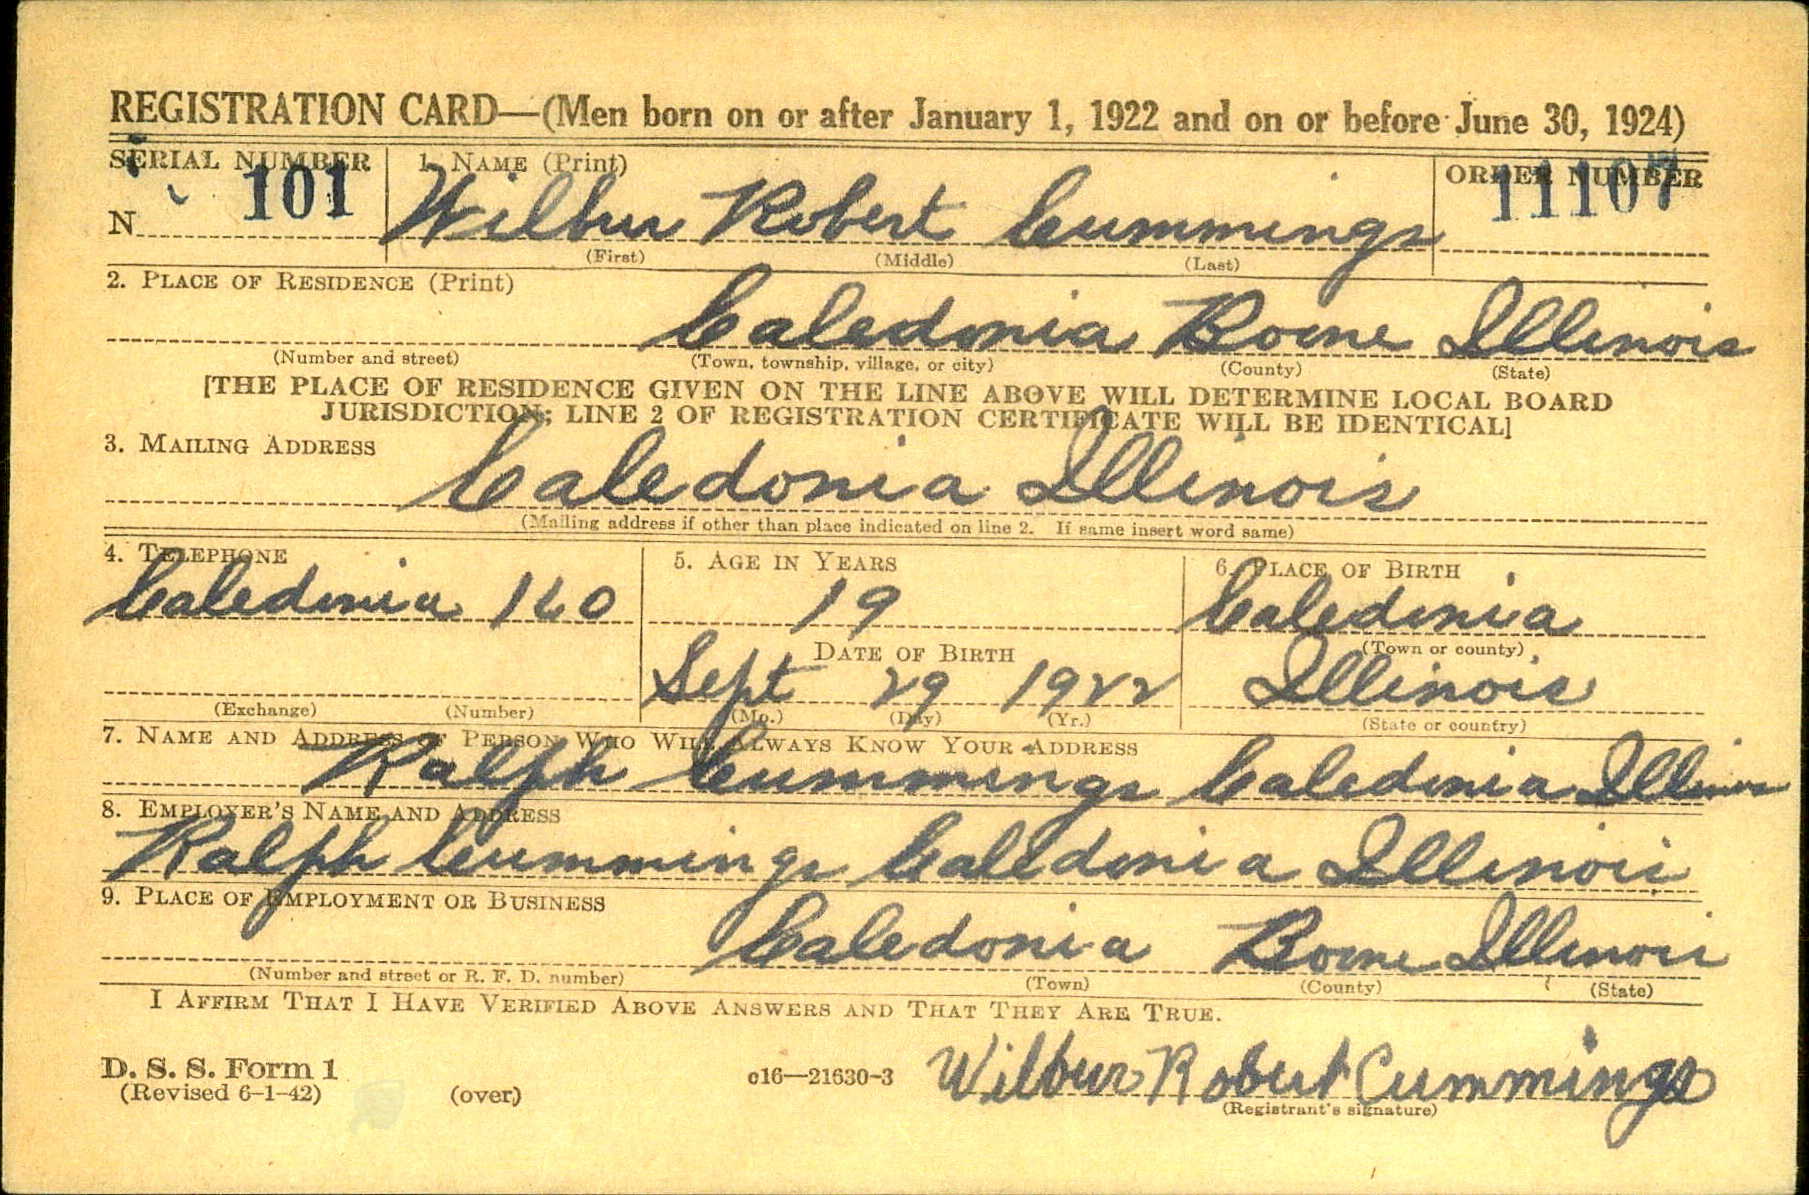 REGISTRATION CARD—(Men born on or after January 1, 1922 and on or before June 30, 1924)
SERIAL NUMBER 1. NAME (Print) ORDER NUMBER
N 101 Wilbur Robert Cummings 11107
(First) (Middle) (Last)
2. PLACE OF RESIDENCE (Print)
Caledonia Boone Illinois
(Number and street) (Town, township, village, or city) (County) (State)
[THE PLACE OF RESIDENCE GIVEN ON THE LINE ABOVE WILL DETERMINE LOCAL BOARD
JURISDICTION; LINE 2 OF REGISTRATION CERTIFICATE WILL BE IDENTICAL]
3. MAILING ADDRESS
Caledonia Illinois
(Mailing address if other than place indicated on line 2. If same insert word same)
4. TELEPHONE 5. AGE IN YEARS 6. PLACE OF BIRTH
Caledonia 160 19 Caledonia
DATE OF BIRTH (Town or county)
Sept 29 1922 Illinois
(Exchange) (Number) (Mo.) (Day) (Yr.) (State or country)
7. NAME AND ADDRESS OF PERSON WHO WILL ALWAYS KNOW YOUR ADDRESS
Ralph Cummings Caledonia Illinois
8. EMPLOYER'S NAME AND ADDRESS
Ralph Cummings Caledonia Illinois
9. PLACE OF EMPLOYMENT OR BUSINESS
Caledonia Boone Illinois
(Number and street or R. F. D. number) (Town) (County) (State)
I AFFIRM THAT I HAVE VERIFIED ABOVE ANSWERS AND THAT THEY ARE TRUE.
D. S. S. Form 1
(Revised 6-1-42) (over) c16—21630-3 Wilbur Robert Cummings
(Registrant's signature)